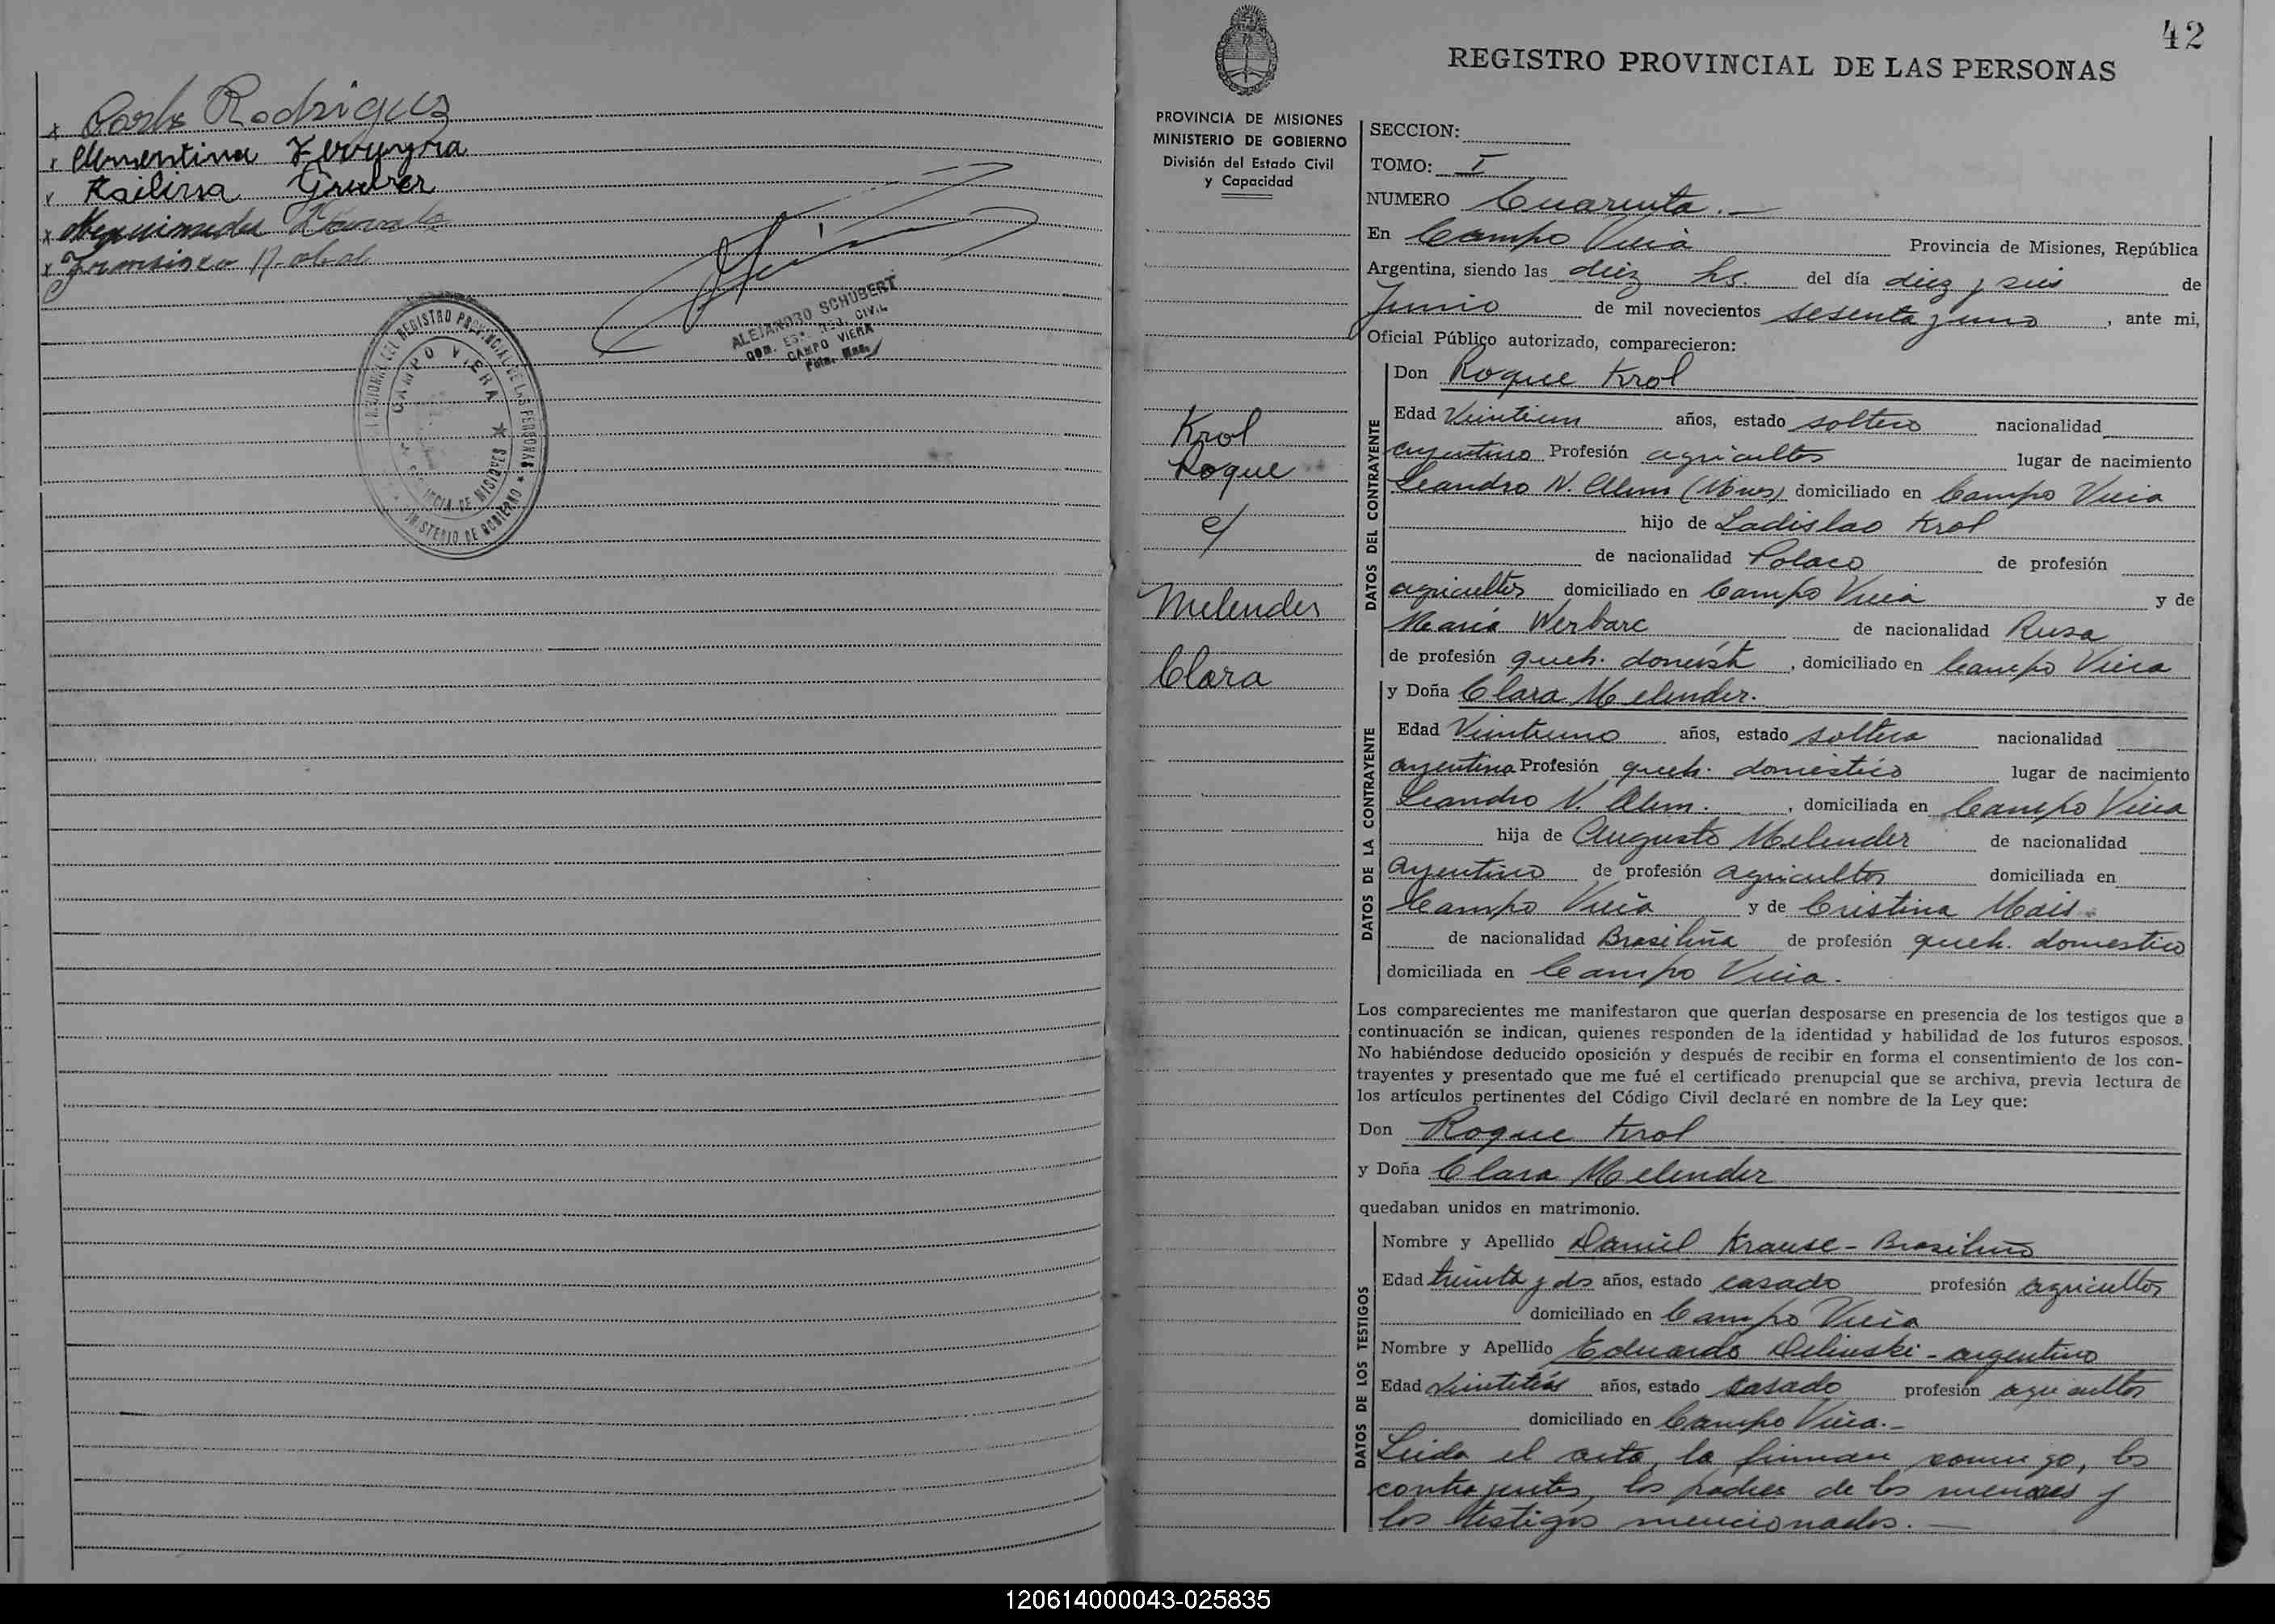 x Carlos Rodriguez
x Clementina Ferreyra
x Railina Gruber
x
x Francisco
ALEJANDRO SCHUBERT
CAMPO VIERA
REGISTRO PROVINCIAL DE LAS PERSONAS
CAMPO VIERA
PROVINCIA DE MISIONES
MINISTERIO DE GOBIERNO
42
REGISTRO PROVINCIAL DE LAS PERSONAS
PROVINCIA DE MISIONES
MINISTERIO DE GOBIERNO
División del Estado Civil
y Capacidad
Krol
Roque
c/
Melender
Clara
SECCION:
TOMO: I
NUMERO Cuarenta.-
En Campo Viera Provincia de Misiones, República
Argentina, siendo las diez hs. del día diez y seis de
Junio de mil novecientos sesenta y uno, ante mi,
Oficial Público autorizado, comparecieron:
DATOS DEL CONTRAYENTE
Don Roque Krol
Edad Veintiun años, estado soltero nacionalidad
argentino Profesión agricultor lugar de nacimiento
Leandro N. Alem (Mnes) domiciliado en Campo Viera
hijo de Ladislao Krol
de nacionalidad Polaco de profesión
agricultor domiciliado en Campo Viera y de
Maria Werbarc de nacionalidad Rusa
de profesión queh. domést, domiciliado en Campo Viera
DATOS DE LA CONTRAYENTE
y Doña Clara Melender.
Edad Veintiuno años, estado soltera nacionalidad
argentina Profesión queh. domestico lugar de nacimiento
Leandro N. Alem., domiciliada en Campo Viera
hija de Augusto Melender de nacionalidad
argentino de profesión agricultor domiciliada en
Campo Viera y de Cristina Mais.
de nacionalidad Brasileña de profesión queh. domestico
domiciliada en Campo Viera.
Los comparecientes me manifestaron que querían desposarse en presencia de los testigos que a
continuación se indican, quienes responden de la identidad y habilidad de los futuros esposos.
No habiéndose deducido oposición y después de recibir en forma el consentimiento de los con-
trayentes y presentado que me fué el certificado prenupcial que se archiva, previa lectura de
los artículos pertinentes del Código Civil declaré en nombre de la Ley que:
Don Roque Krol
y Doña Clara Melender
quedaban unidos en matrimonio.
DATOS DE LOS TESTIGOS
Nombre y Apellido Daniel Krause - Brasileño
Edad treinta y dos años, estado casado profesión agricultor
domiciliado en Campo Viera
Nombre y Apellido Eduardo Delinski - argentino
Edad veintitrés años, estado casado profesión agricultor
domiciliado en Campo Viera.-
Leida el acta, la firman conmigo, los
contrayentes, los padres de los menores y
los testigos mencionados.-
120614000043-025835